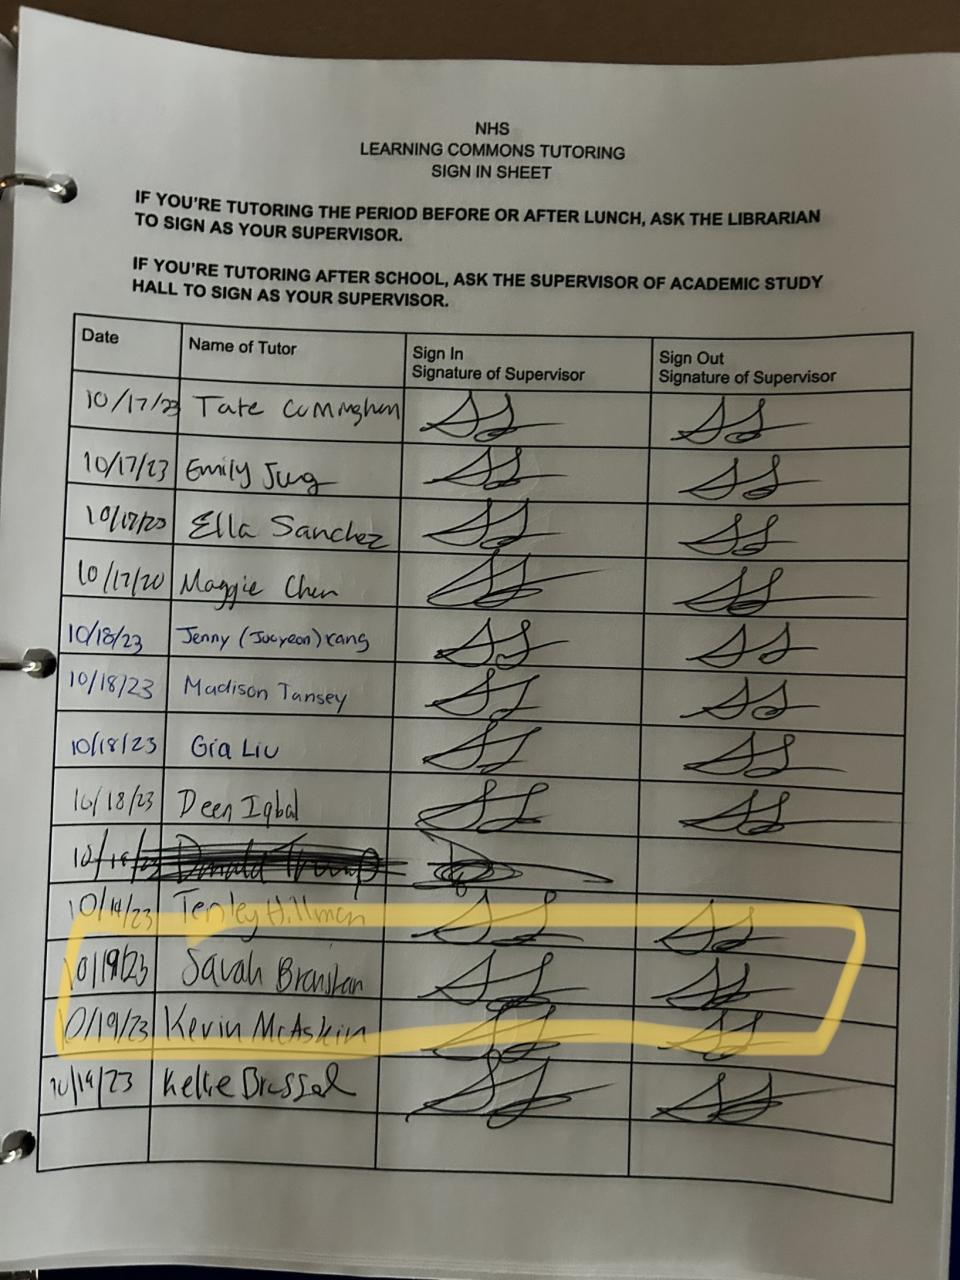 NHS
LEARNING COMMONS TUTORING
SIGN IN SHEET
IF YOU'RE TUTORING THE PERIOD BEFORE OR AFTER LUNCH, ASK THE LIBRARIAN
TO SIGN AS YOUR SUPERVISOR.
IF YOU'RE TUTORING AFTER SCHOOL, ASK THE SUPERVISOR OF ACADEMIC STUDY
HALL TO SIGN AS YOUR SUPERVISOR.
Date Name of Tutor Sign In Signature of Supervisor Sign Out Signature of Supervisor
10/17/23 Tate
10/17/23 Emily Jung
Ella Sanchez
10/17/20 Maggie Chen
10/18/23 Jenny (Jooyeon) Kang
10/18/23 Madison Tansey
10/18/23 Gia Liu
10/18/23 Deen Iqbal
Donald Trump
Tenley Hillman
10/19/23 Sarah
10/19/23 Kevin McAskin
10/19/23 Kellie